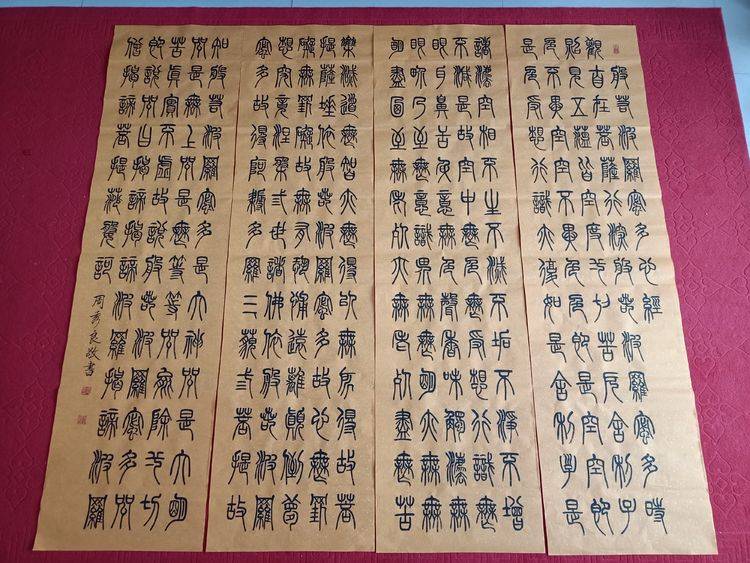 般若波羅蜜多心經
觀自在菩薩行深般若波羅蜜多時
照見五蘊皆空度一切苦厄舍利子
色不異空空不異色色即是空空即
是色受想行識亦復如是舍利子是
諸法空相不生不滅不垢不淨不增
不減是故空中無色無受想行識無
眼耳鼻舌身意無色聲香味觸法無
眼界乃至無意識界無無明亦無無
明盡乃至無老死亦無老死盡無苦
集滅道無智亦無得以無所得故菩
提薩埵依般若波羅蜜多故心無罣
礙無罣礙故無有恐怖遠離顛倒夢
想究竟涅槃三世諸佛依般若波羅
蜜多故得阿耨多羅三藐三菩提故
知般若波羅蜜多是大神咒是大明
咒是無上咒是無等等咒能除一切
苦真實不虛故說般若波羅蜜多咒
即說咒曰揭諦揭諦波羅揭諦波羅
僧揭諦菩提薩婆訶
周秀良敬書